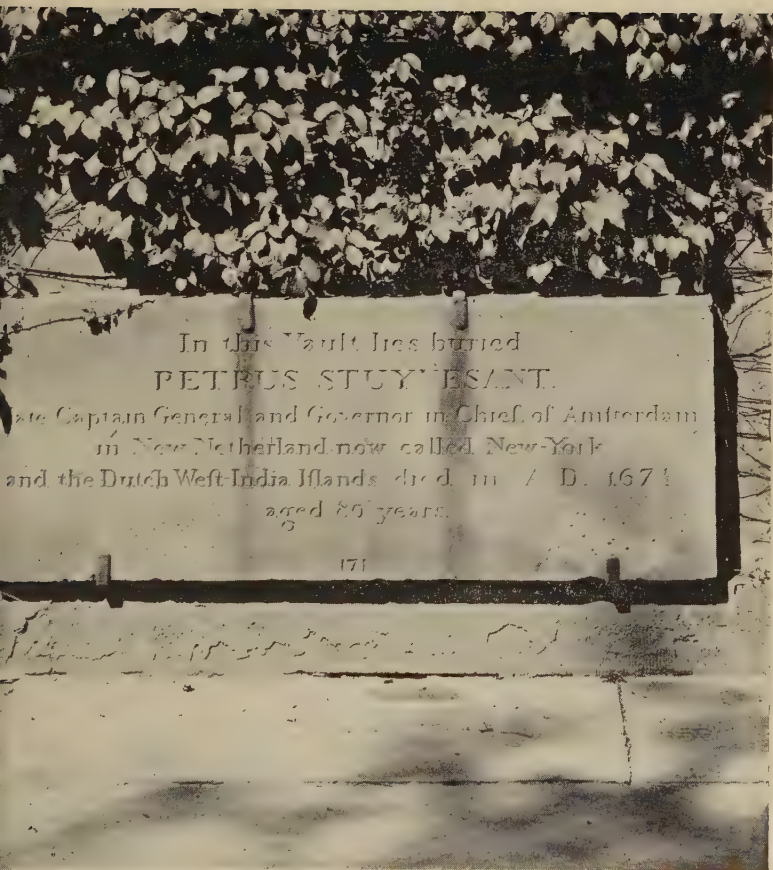 In this Vault lies buried
PETRUS STUYVESANT.
late Captain General and Governor in Chief of Amſterdam
in New Netherland now called New-York
and the Dutch Weſt-India Iſlands died in A D. 167
aged 80 years.
171